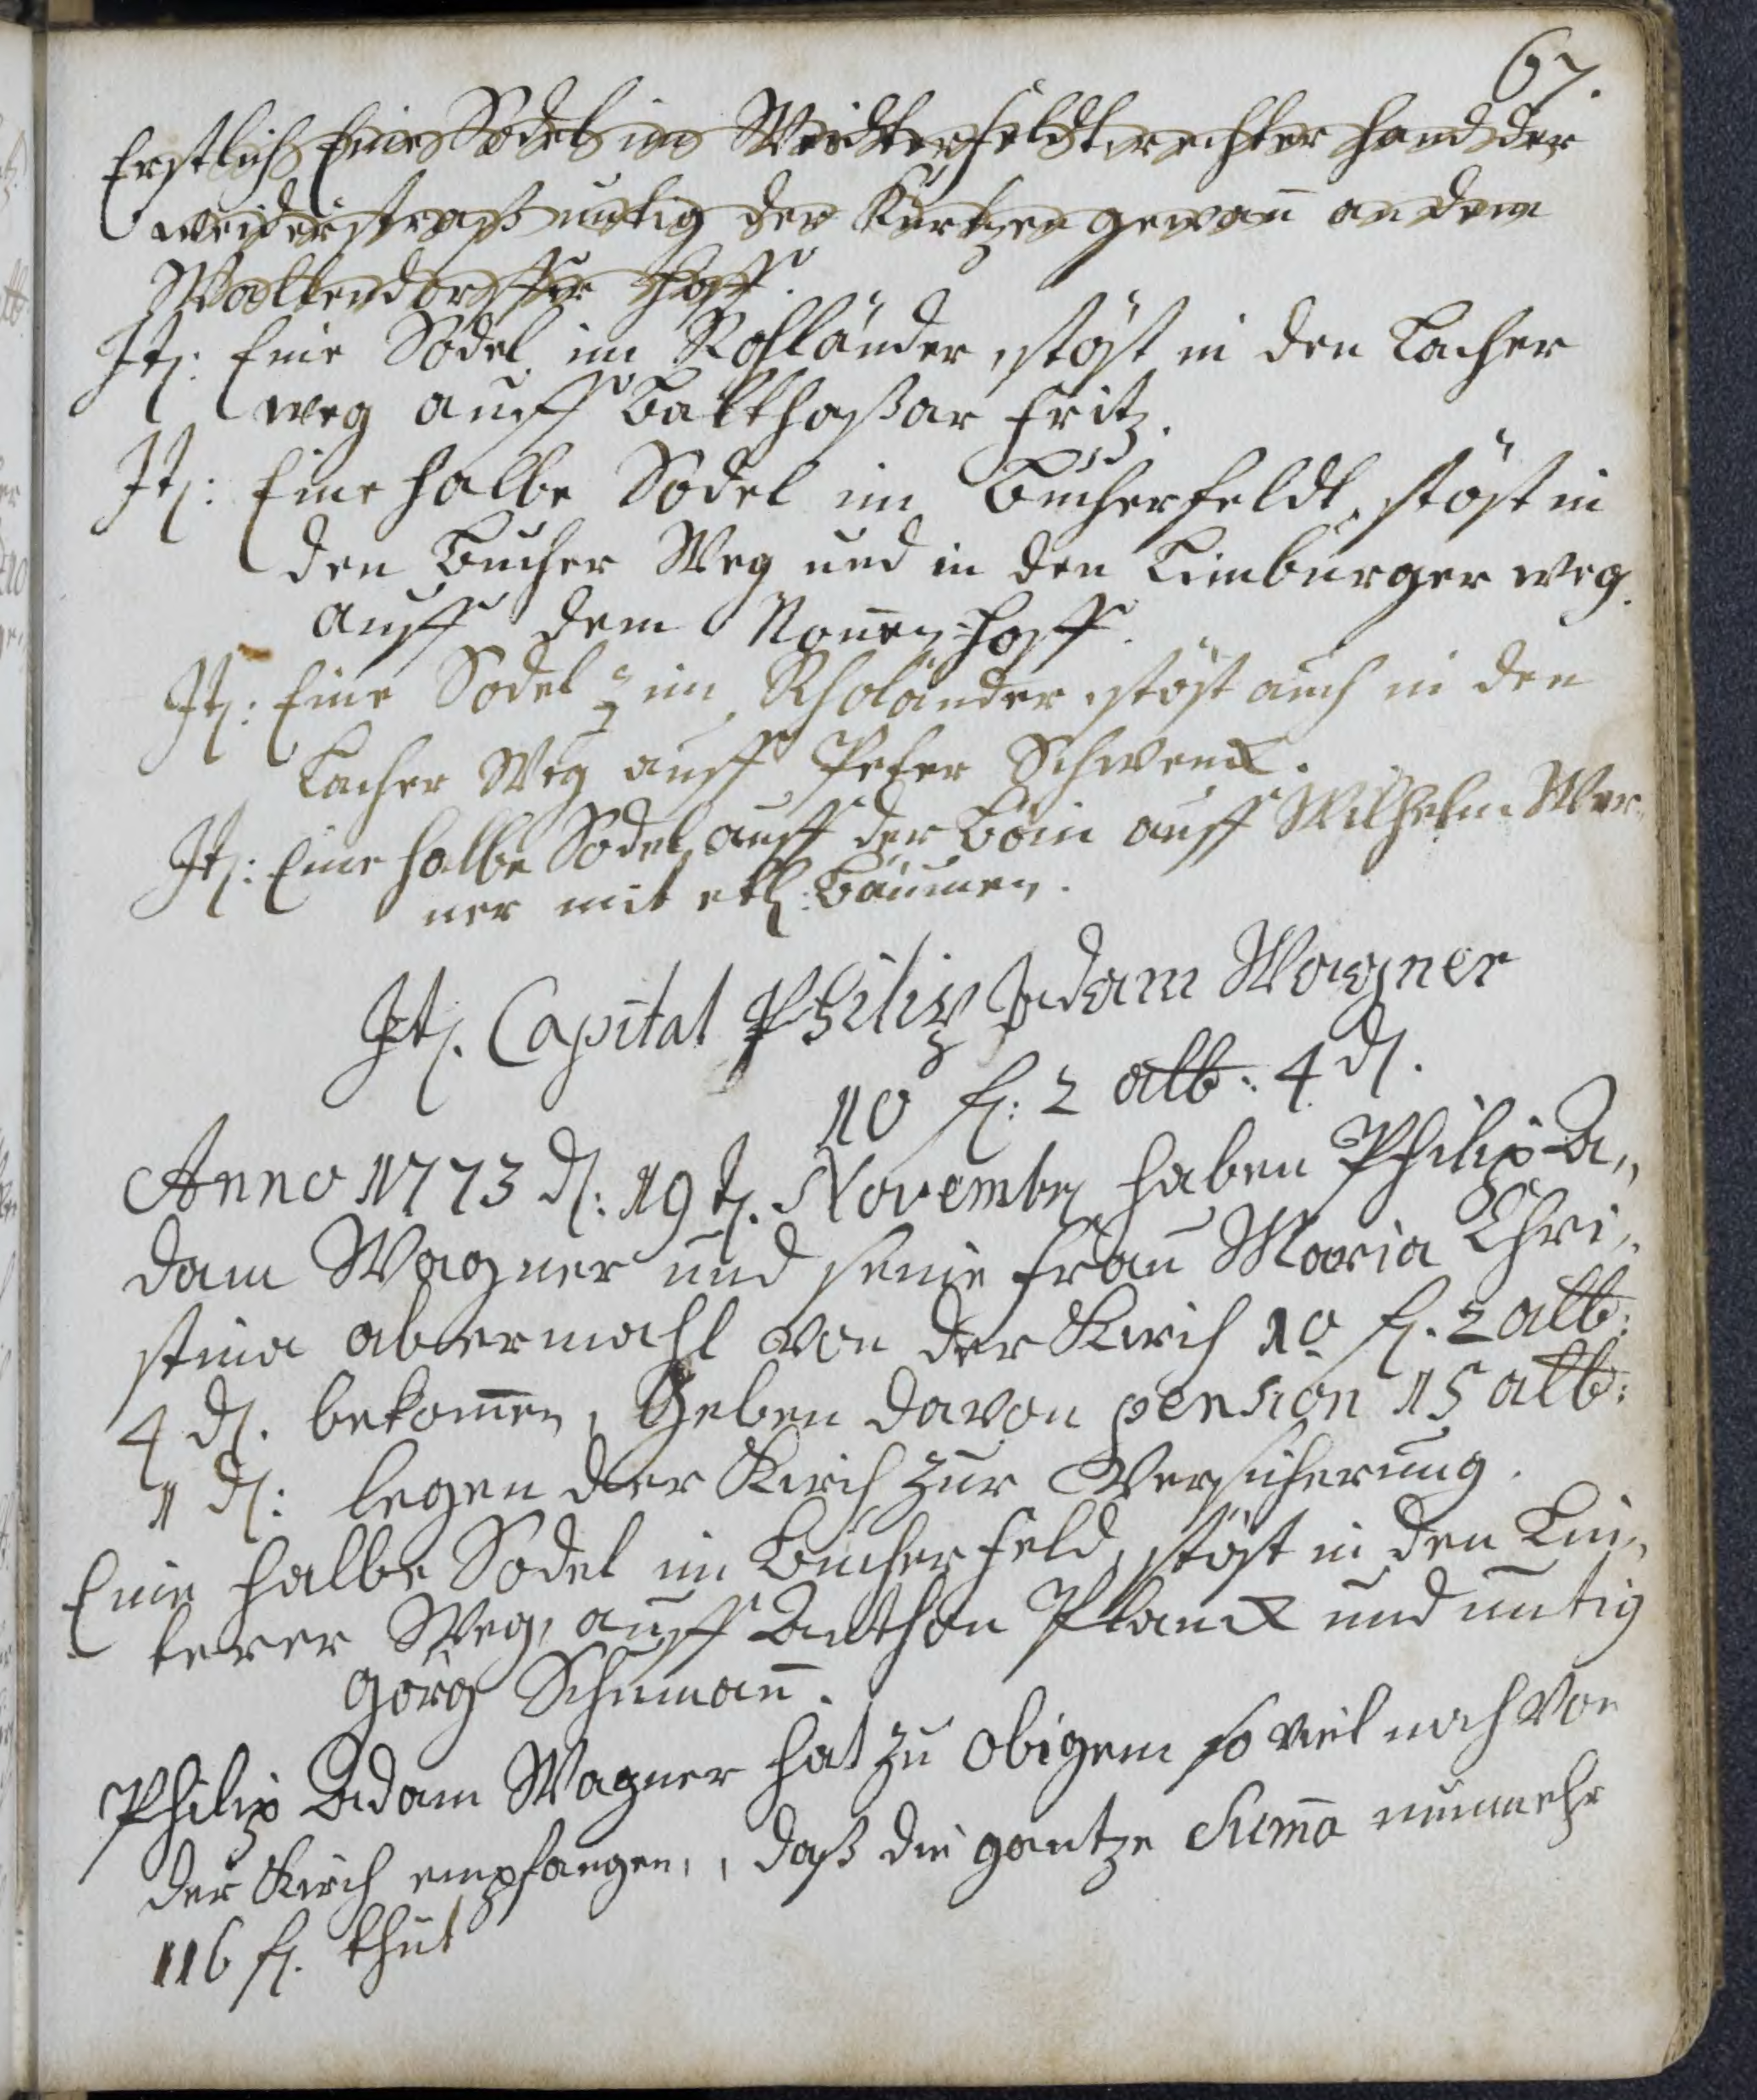 67.
Erstlich Eine Sodel im Weidterfeldt rechter Hand der
weiderstraß nutig der Kurtzen gewan̄ an dem
Waltendorffer Hoff.
It: Eine Sodel im Rohländer, stöst in den Lacher
weg auff Balthaßar Fritz.
It: Eine halbe Sodel im Bucherfeldt, stöst in
den Bucher Weg und in den Limburger weg.
auff dem Non̄en-Hoff.
It: Eine Sodel im Rholänder, stöst auch in den
Lacher Weg auff Peter Schwenck.
It: Eine halbe Sodel auff der Böin auff Wilhelm Wer„
ner mit etl: Bäumen.
It. Capital Philip Adam Wagner
10 f: 2 alb: 4 d.
Anno 1773 d: 19 t. Novembr haben Philip A„
dam Wagner und seine Frau Maria Chri„
stina abermahl von der Kirch 10 f. 2 alb:
4 d. bekom̄en, Geben davon pension 15 alb:
1 d: legen der Kirch zur Versicherung.
Eine halbe Sodel im Bucher Feld, stöst in den Lin„
terer Weg, auff Anthon Planck und nutig
Görg Schuman̄.
Philip Adam Wagner hat zu obigem so viel noch von
der Kirch empfangen, daß die gantze Sum̄a nunmehr
116 f. thut